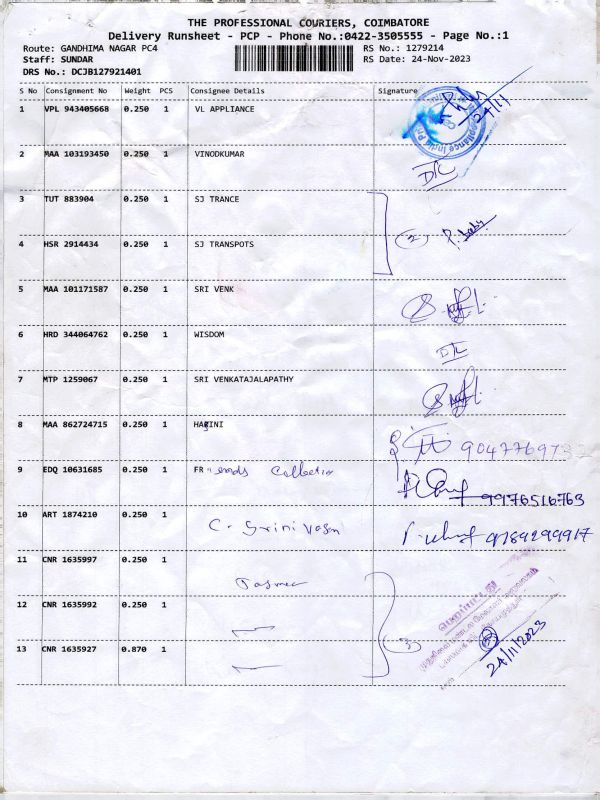 THE PROFESSIONAL COURIERS, COIMBATORE
Delivery Runsheet - PCP - Phone No.:0422-3505555 - Page No.:1
Route: GANDHIMA NAGAR PC4 RS No.: 1279214
Staff: SUNDAR RS Date: 24-Nov-2023
DRS No.: DCJB127921401
S No Consignment No Weight PCS Consignee Details Signature
1 VPL 943405668 0.250 1 VL APPLIANCE 24/11
2 MAA 103193450 0.250 1 VINODKUMAR
3 TUT 883904 0.250 1 SJ TRANCE
4 HSR 2914434 0.250 1 SJ TRANSPOTS (2) P. baby
5 MAA 101171587 0.250 1 SRI VENK
6 HRD 344064762 0.250 1 WISDOM
7 MTP 1259067 0.250 1 SRI VENKATAJALAPATHY
8 MAA 862724715 0.250 1 HARINI
9 EDQ 10631685 0.250 1 FRiends Collection 9976516763
10 ART 1874210 0.250 1 C. Srinivasan 9789299917
11 CNR 1635997 0.250 1 Tasmac
12 CNR 1635992 0.250 1
13 CNR 1635927 0.870 1 (3) 24/11/2023